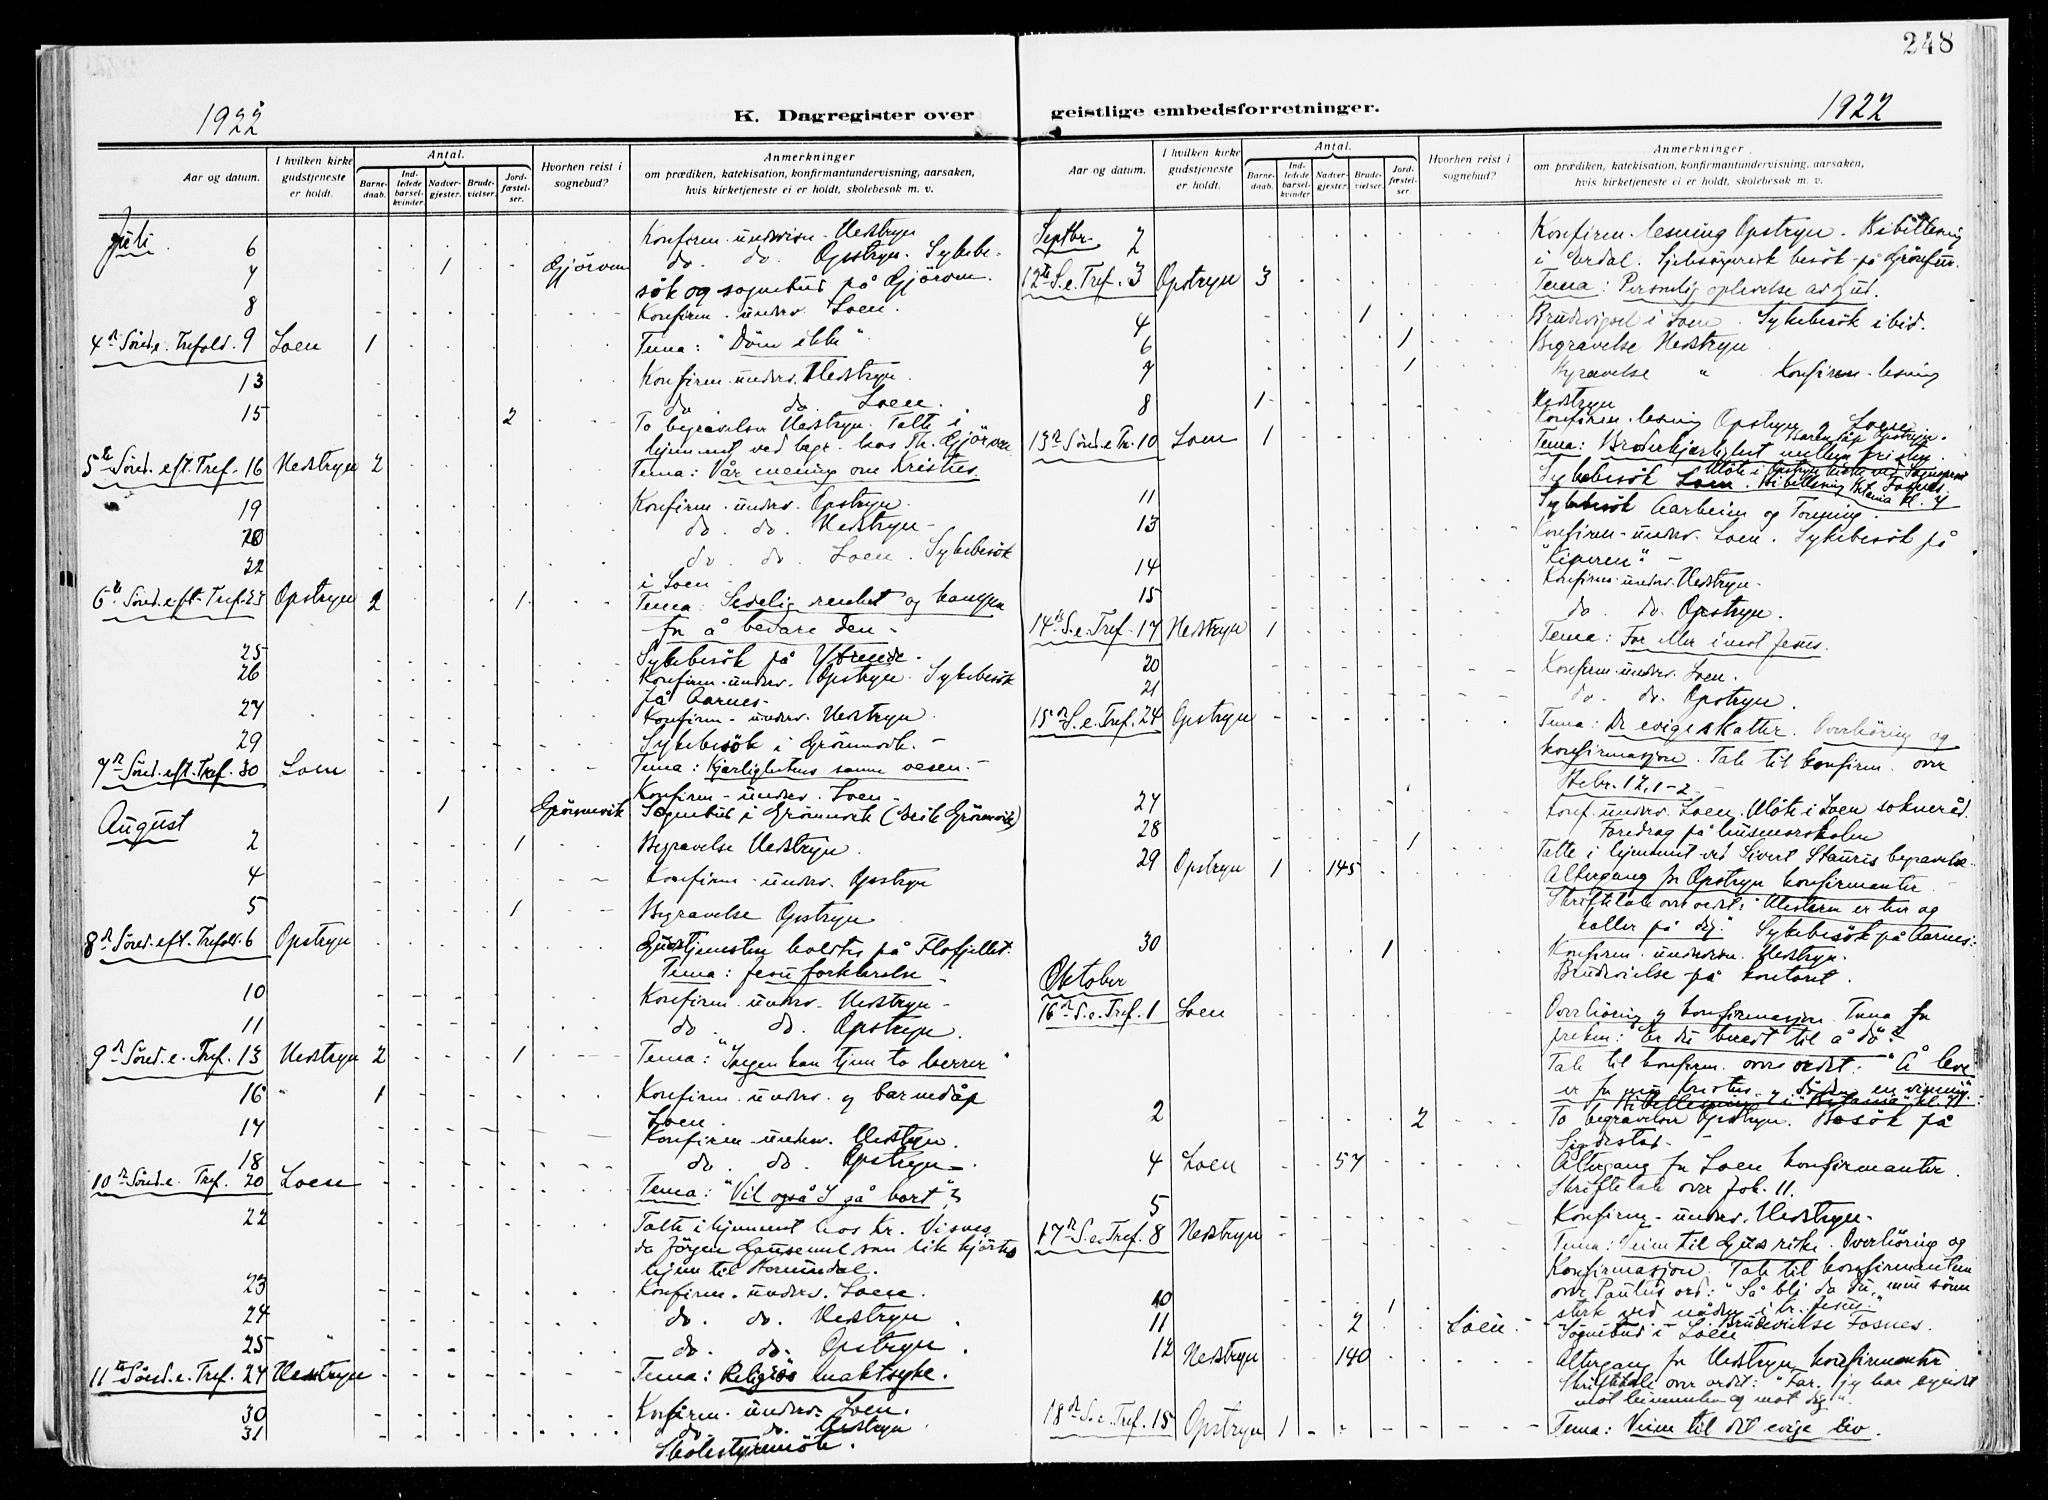 248
1922
K. Dagregister over
Aar og datum.
I hvilken kirke gudstjeneste er holdt.
Antal.
Barne-daab.
Ind-ledede barsel-kvinder.
Nadver-gjester.
Brude-vielser.
Jord-fæstel-ser.
Hvorhen reist i sognebud?
Anmerkninger
om prædiken, katekisation, konfirmantundervisning, aarsaken,
hvis kirketjeneste ei er holdt, skolebesøk m. v.
Juli
6 Konfirm. undervisn. Nedstryn
7 1 Gjörven do. do. Opstryn. Sykebe-
sök og sognebud på Gjörven.
8 Konfirm. underv. Loen.
4de Sönd. e. Trefold. 9 Loen 1 Tema: "Döm ikke"
13 Konfirm. underv. Nedstryn.
do do. Loen.
15 2 To begravelser Nedstryn. Talte i
hjemmet ved begr. hos Th. Gjörven
5te Sönd. eft. Tref. 16 Nedstryn 2 Tema: Vår mening om Kristus.
19 Konfirm. underv. Opstryn.
20 do. do. Nedstryn
22 do do Loen. Sykebesök
i Loen
6te Sönd. eft. Tref. 23 Opstryn 2 1 Tema: Sedelig renhet og kampen
for å bevare den
25 Sykebesök på Ytreeide.
26 Konfirm. underv. Opstryn. Sykebesök
på Aarnes.
27 Konfirm. underv. Nedstryn
29 Sykebesök i Grönnvik.
7de Sönd. eft. Tref. 30 Loen Tema: Kjærlighetens sanne vesen.
Konfirm. underv. Loen
August
1 Grönnvik Sognebud i Grönnvik (Beste Grönnvik)
2 1 Begravelse Nedstryn.
4 Konfirm. underv. Opstryn
5 1 Begravelse Opstryn
8de Sönd. eft. Trefold. 6 Opstryn Gudstjenesten holdtes på Flofjellet.
Tema: Jesu forklarelse
10 Konfirm. underv. Nedstryn
11 do do. Opstryn.
9de Sönd. e. Tref. 13 Nedstryn 2 1 Tema: "Ingen kan tjene to herrer"
16 1 Konfirm. underv. og barnedåp
Loen.
17 Konfirm. underv. Nedstryn.
18 do. do. Opstryn
10de Sönd. e. Tref. 20 Loen Tema: "Vil også I gå bort"?
22 Talte i hjemmet hos Kr. Visnes,
da Jörgen som lik kjörtes
hjem til Hornindal.
23 Konfirm. underv. Loen.
24 do. do. Nedstryn
25 do. do. Opstryn
11te Sönd. e. Tref. 27 Nedstryn Tema: Religiös maktsyke.
30 Konfirm. underv. Loen.
31 do. do. Nedstryn
Skolestyremöte.
1922
geistlige embedsforretninger.
Aar og datum.
I hvilken kirke gudstjeneste er holdt.
Antal.
Barne-daab.
Ind-ledede barsel-kvinder.
Nadver-gjester.
Brude-vielser.
Jord-fæstel-ser.
Hvorhen reist i sognebud?
Anmerkninger
om prædiken, katekisation, konfirmantundervisning, aarsaken,
hvis kirketjeneste ei er holdt, skolebesøk m. v.
Septbr. 2 Konfirm. lesning Opstryn. Bibellesning
i Erdal. Sjelesörgerisk besök på
12te S. e. Tref. 3 Opstryn 3 Tema: Personlig oplevelse av Gud.
4 1 Brudevigsel i Loen. Sykebesök ibid.
6 1 Begravelse Nedstryn
7 1 Begravelse " Konfirm. lesning
Nedstryn
8 1 Konfirm. lesning Opstryn og Loen
Barnedåp Opstryn.
13de Sönd. e. Tr. 10 Loen 1 Tema: Broderkjærlighet mellem kristne.
Sykebesök Loen.
11 Sykebesök Aarheim og Tonning.
13 Konfirm. underv. Loen. Sykebesök på
14 Konfirm. underv. Nedstryn.
15 do. do. Opstryn.
14de S. e. Tref. 17 Nedstryn 1 Tema: For eller imot Jesus.
20 Konfirm. underv. Loen.
21 do. do. Opstryn.
15de S. e. Tref. 24 Opstryn Tema: De evige skatter. Overhöring og
konfirmasjon. Tale til konfirm. over
Hebr. 12, 1-2.
27 Konf. underv. Loen. Möte i Loen sokneråd.
28 1 Foredrag på husmorskolen
Talte i hjemmet ved Sivert Stauris begravelse.
29 Opstryn 1 145 Altergang for Opstryn konfirmanter
Skriftetale over ordet: "Mesteren er her og
kaller på dig." Sykebesök på Aarnes.
30 1 Konfirm. undervisn. Nedstryn.
Brudevielse på kontoret.
Oktober
16de S. e. Tref. 1 Loen Overhöring og konfirmasjon. Tema for
preken: Er du beredt til å dö?
Tale til konfirm. over ordet: "Å leve
er for mig Kristus og döden en vinning".
Bibellesning i "Betania" kl. 7.
2 2 To begravelser Opstryn. Besök på
4 Loen 57 Altergang for Loen konfirmanter.
Skriftetale over Joh. 11.
5 Konfirm. underv. Nedstryn.
17de S. e. Tref. 8 Nedstryn Tema: Veien til Guds rike. Overhöring og
konfirmasjon. Tale til konfirmantene
over Paulus ord: "Så bli da du, min sönn
sterk ved nåden i Kr. Jesus."
10 1 Brudevielse Fosnes.
11 2 Loen Sognebud i Loen
12 Nedstryn 140 Altergang for Nedstryn konfirmanter
Skriftetale over ordet: "Far, jeg har syndet
mot himmelen og mot dig".
18de S. e. Tref. 15 Opstryn 1 Tema: Veien til det evige liv.